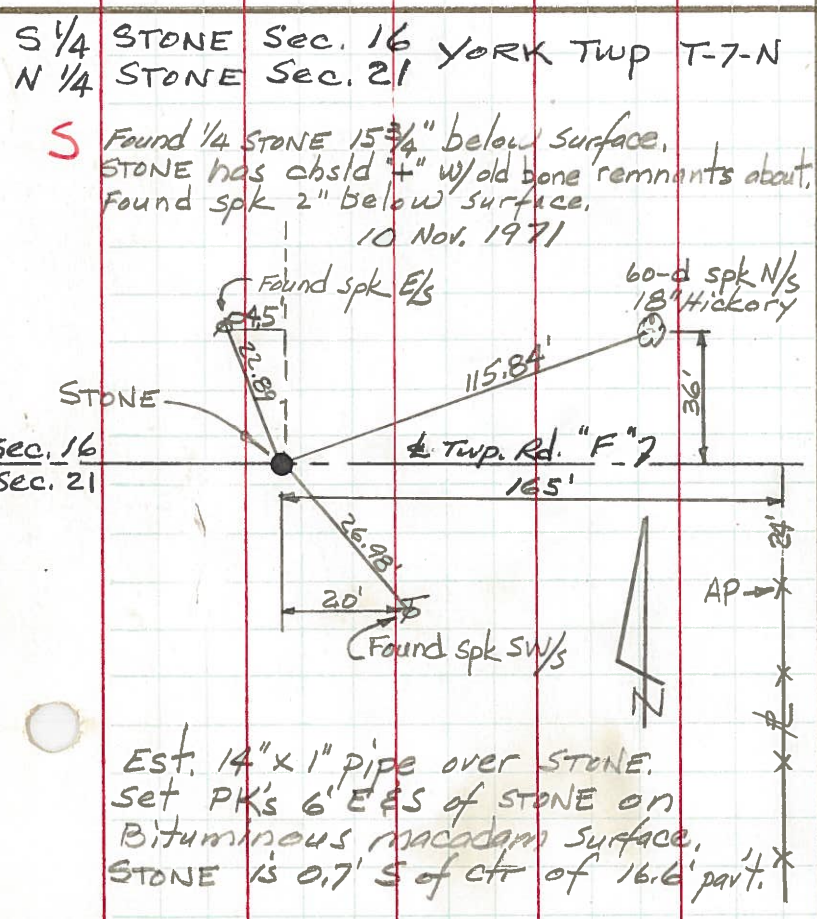 S 1/4 STONE Sec. 16 YORK TWP T-7-N
N 1/4 STONE Sec. 21
S
Found 1/4 STONE 15 3/4" below surface.
STONE has chsld "+" w/old bone remnants about.
Found spk 2" below surface.
10 Nov. 1971
Found spk E/s
60-d spk N/s
18" Hickory
4.5'
22.89
115.84'
36'
STONE
Sec. 16
Sec. 21
℄ Twp. Rd. "F" 7
165'
24'
26.98'
20'
AP
Found spk SW/s
N
Est. 14" x 1" pipe over STONE.
Set PK's 6' E & S of STONE on
Bituminous macadam surface.
STONE is 0.7' S of ctr of 16.6' pav't.